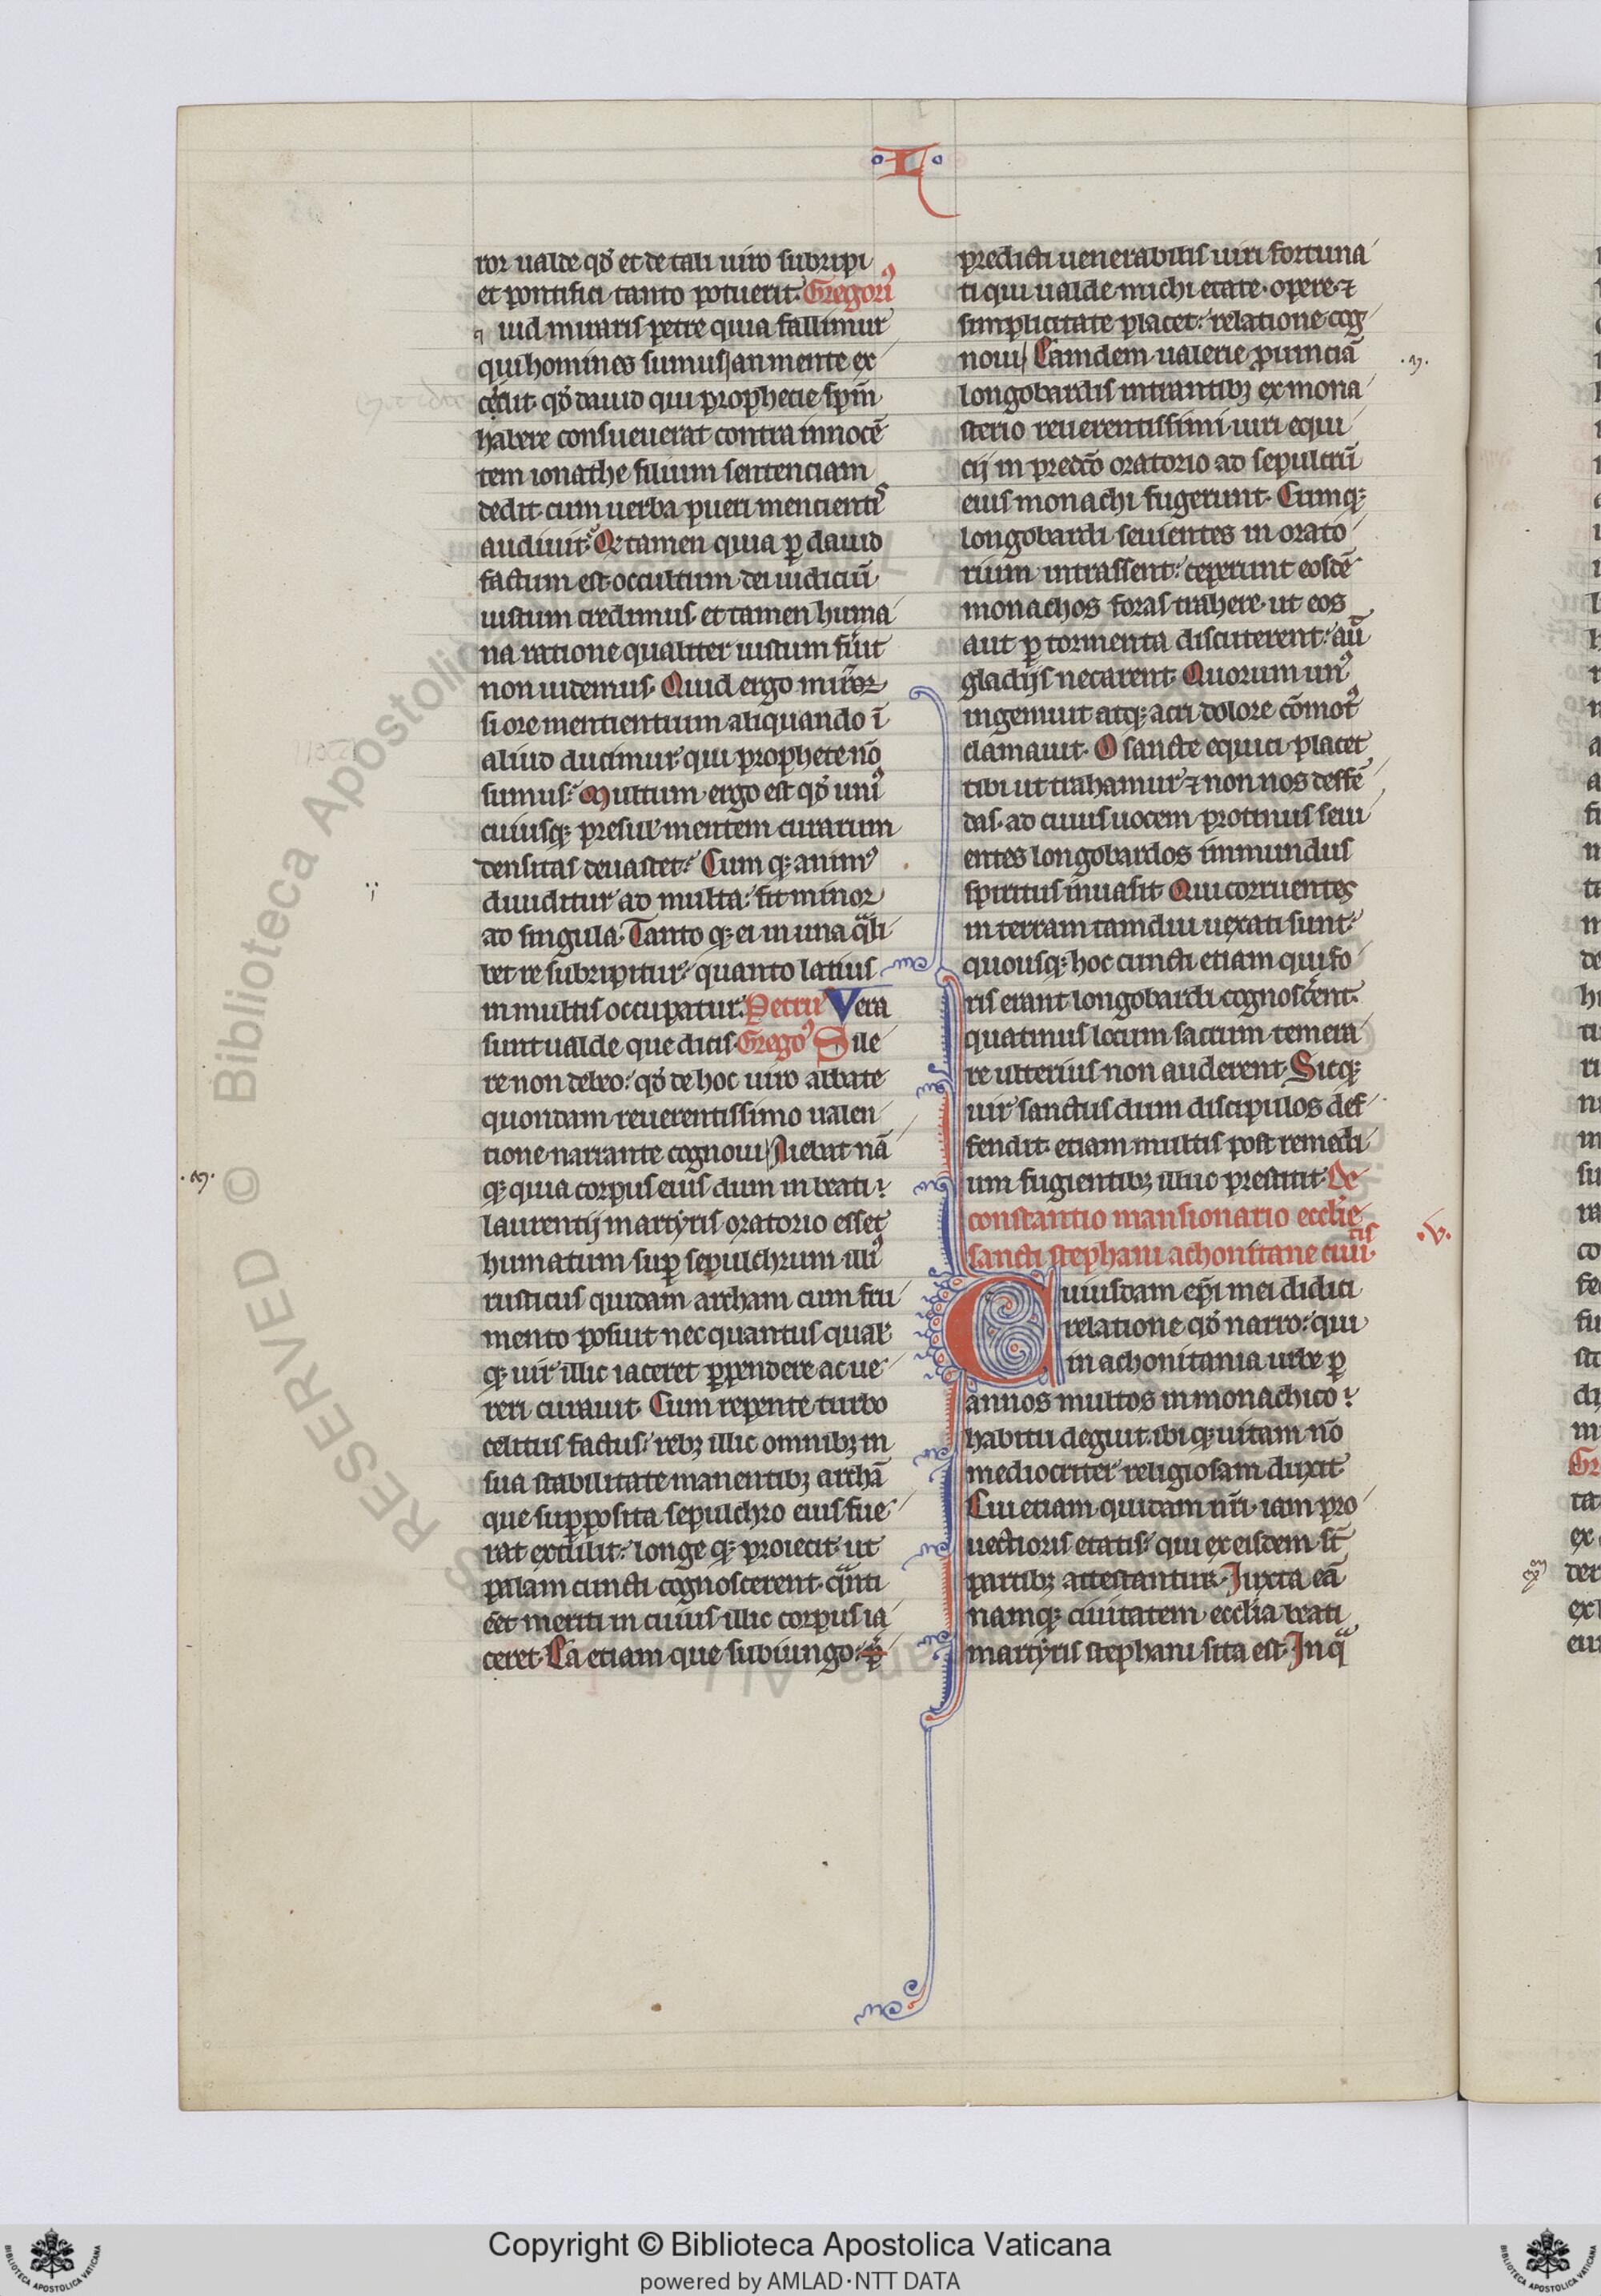 L
ror ualde qđ et de tali uiro subripi
et pontifici tanto potuerit. Gregori⁹
q uid miraris petre quia fallimur
qui homines sumus| an mente ex
cẻdit qđ dauid qui prophetie sp̄m
habere consueuerat contra innocē
tem ionathe filium sentenciam
dedit. cum uerba pueri mencientiˢ
audiuit? Qđ tamen quia ꝑ dauid
factum est. occultum dei iudiciū
iustum credimus. et tamen huma
na ratione qualiter iustum fu͛it
non uidemus. Quid ergo miru͛
si ore mentientium aliquando ī
aliud ducimur qui prophete nō
sumus? Multum ergo est qđ uni⁹
cuiusq; presul͛ mentem curarum
densitas deuastet. Cum q; anim⁹
diuiditur ad multa: fit minor
ad singula. Tanto q; ei in una qͣli
bet re subripitur quanto latius
in multis occupatur. Petru⁹ Vera
sunt ualde que dicis. Grego⁹ Sile
re non debeo: qđ de hoc uiro abbate
quondam reuerentissimo ualen
tione narrante cognoui| Aiebat nā
q; quia corpus eius dum in beati
laurentij martyris oratorio esset
humatum. sup̱ sepulchrum illi⁹
rusticus quidam archam cum fru
mento posuit nec quantus qual͛
q; uir illic iaceret ꝑpendere ac ue
reri curauit. Cum repente turbo
celitus factus: rebꝫ illic omnibꝫ in
sua stabilitate manentibꝫ archā
que suꝑposita sepulchro eius fue
rat extulit: longe q; proiecit. ut
palam cuncti cognoscerent. qͣnti
eēt meriti in cuius illic corpus ia
ceret. Ea etiam que subiungo:
predicti uenerabilis uiri fortuna
ti qui ualde michi etate. opere. ⁊
simplicitate placet: relatione cog
noui| Eamdem ualerie ꝓuinciā
longobardis intrantibꝫ ex mona
sterio reuerentissimi uiri equi
cij in predc̄o oratorio ad sepulcrū
eius monachi fugerunt. Cumq;
longobardi seuientes in orato
rium intrassent: ceperunt eosdē
monachos foras trahere. ut eos
aut ꝑ tormenta discuterent: aū
gladijs necarent. Quorum un⁹
ingemuit atq; acri dolore cōmot⁹
clamauit. O sancte equici placet
tibi ut trahamur ⁊ non nos deffē
das. ad cuius uocem protinus seui
entes longobardos immundus
spiritus inuasit. Qui corruentes
in terram tamdiu uexati sunt:
quousq; hoc cuncti etiam qui fo
ris erant longobardi cognoscerent.
quatinus locum sacrum temera
re ulterius non auderent. Sicq;
uir sanctus dum discipulos def
fendit. etiam multis post remedi
um fugientibꝫ illuc prestitit. De
constantio mansionario ecclie
sancti stephani achonitane ciui
tis
.V.
Cuiusdam ep̄i mei didici
relatione qđ narro: qui
in achonitania urbe ꝑ
annos multos in monachico
habitu deguit. ibi q; uitam nō
mediocriter religiosam duxit.
Cui etiam quidam nr̄i. iam pro
uectioris etatis: qui ex eisdem st̄
partibꝫ attestantur. Juxta eā
namq; ciuitatem ecclia beati
martyris stephani sita est. In qͣ
Copyright © Biblioteca Apostolica Vaticana
powered by AMLAD·NTT DATA